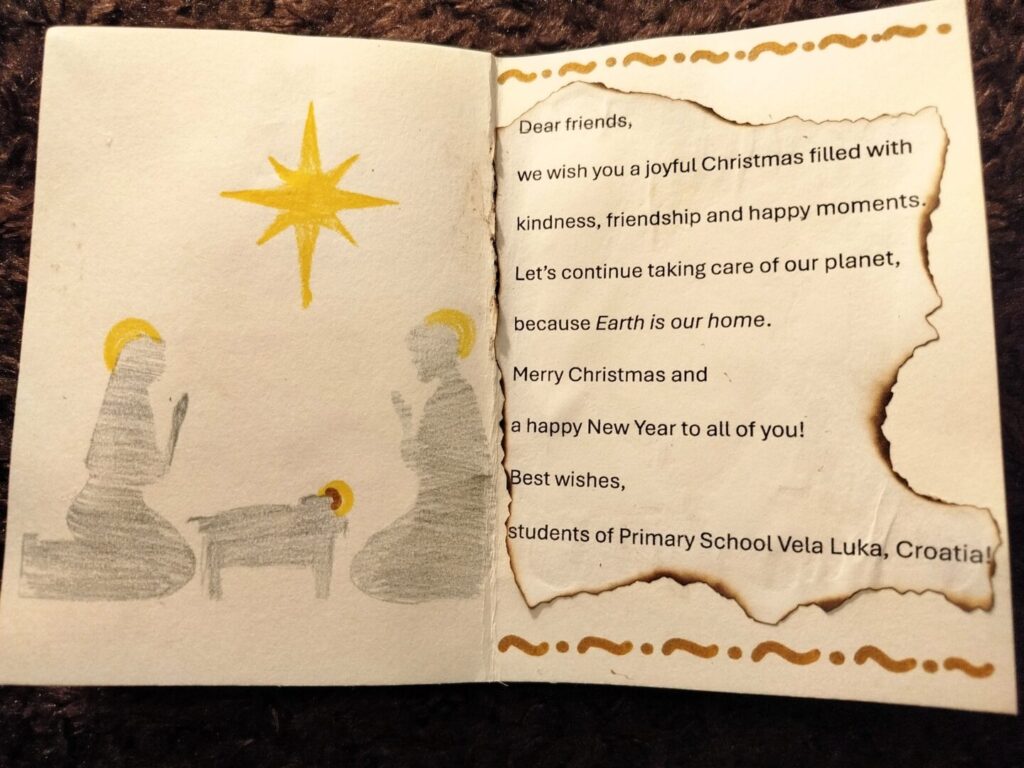 Dear friends,
we wish you a joyful Christmas filled with
kindness, friendship and happy moments.
Let's continue taking care of our planet,
because Earth is our home.
Merry Christmas and
a happy New Year to all of you!
Best wishes,
students of Primary School Vela Luka, Croatia!